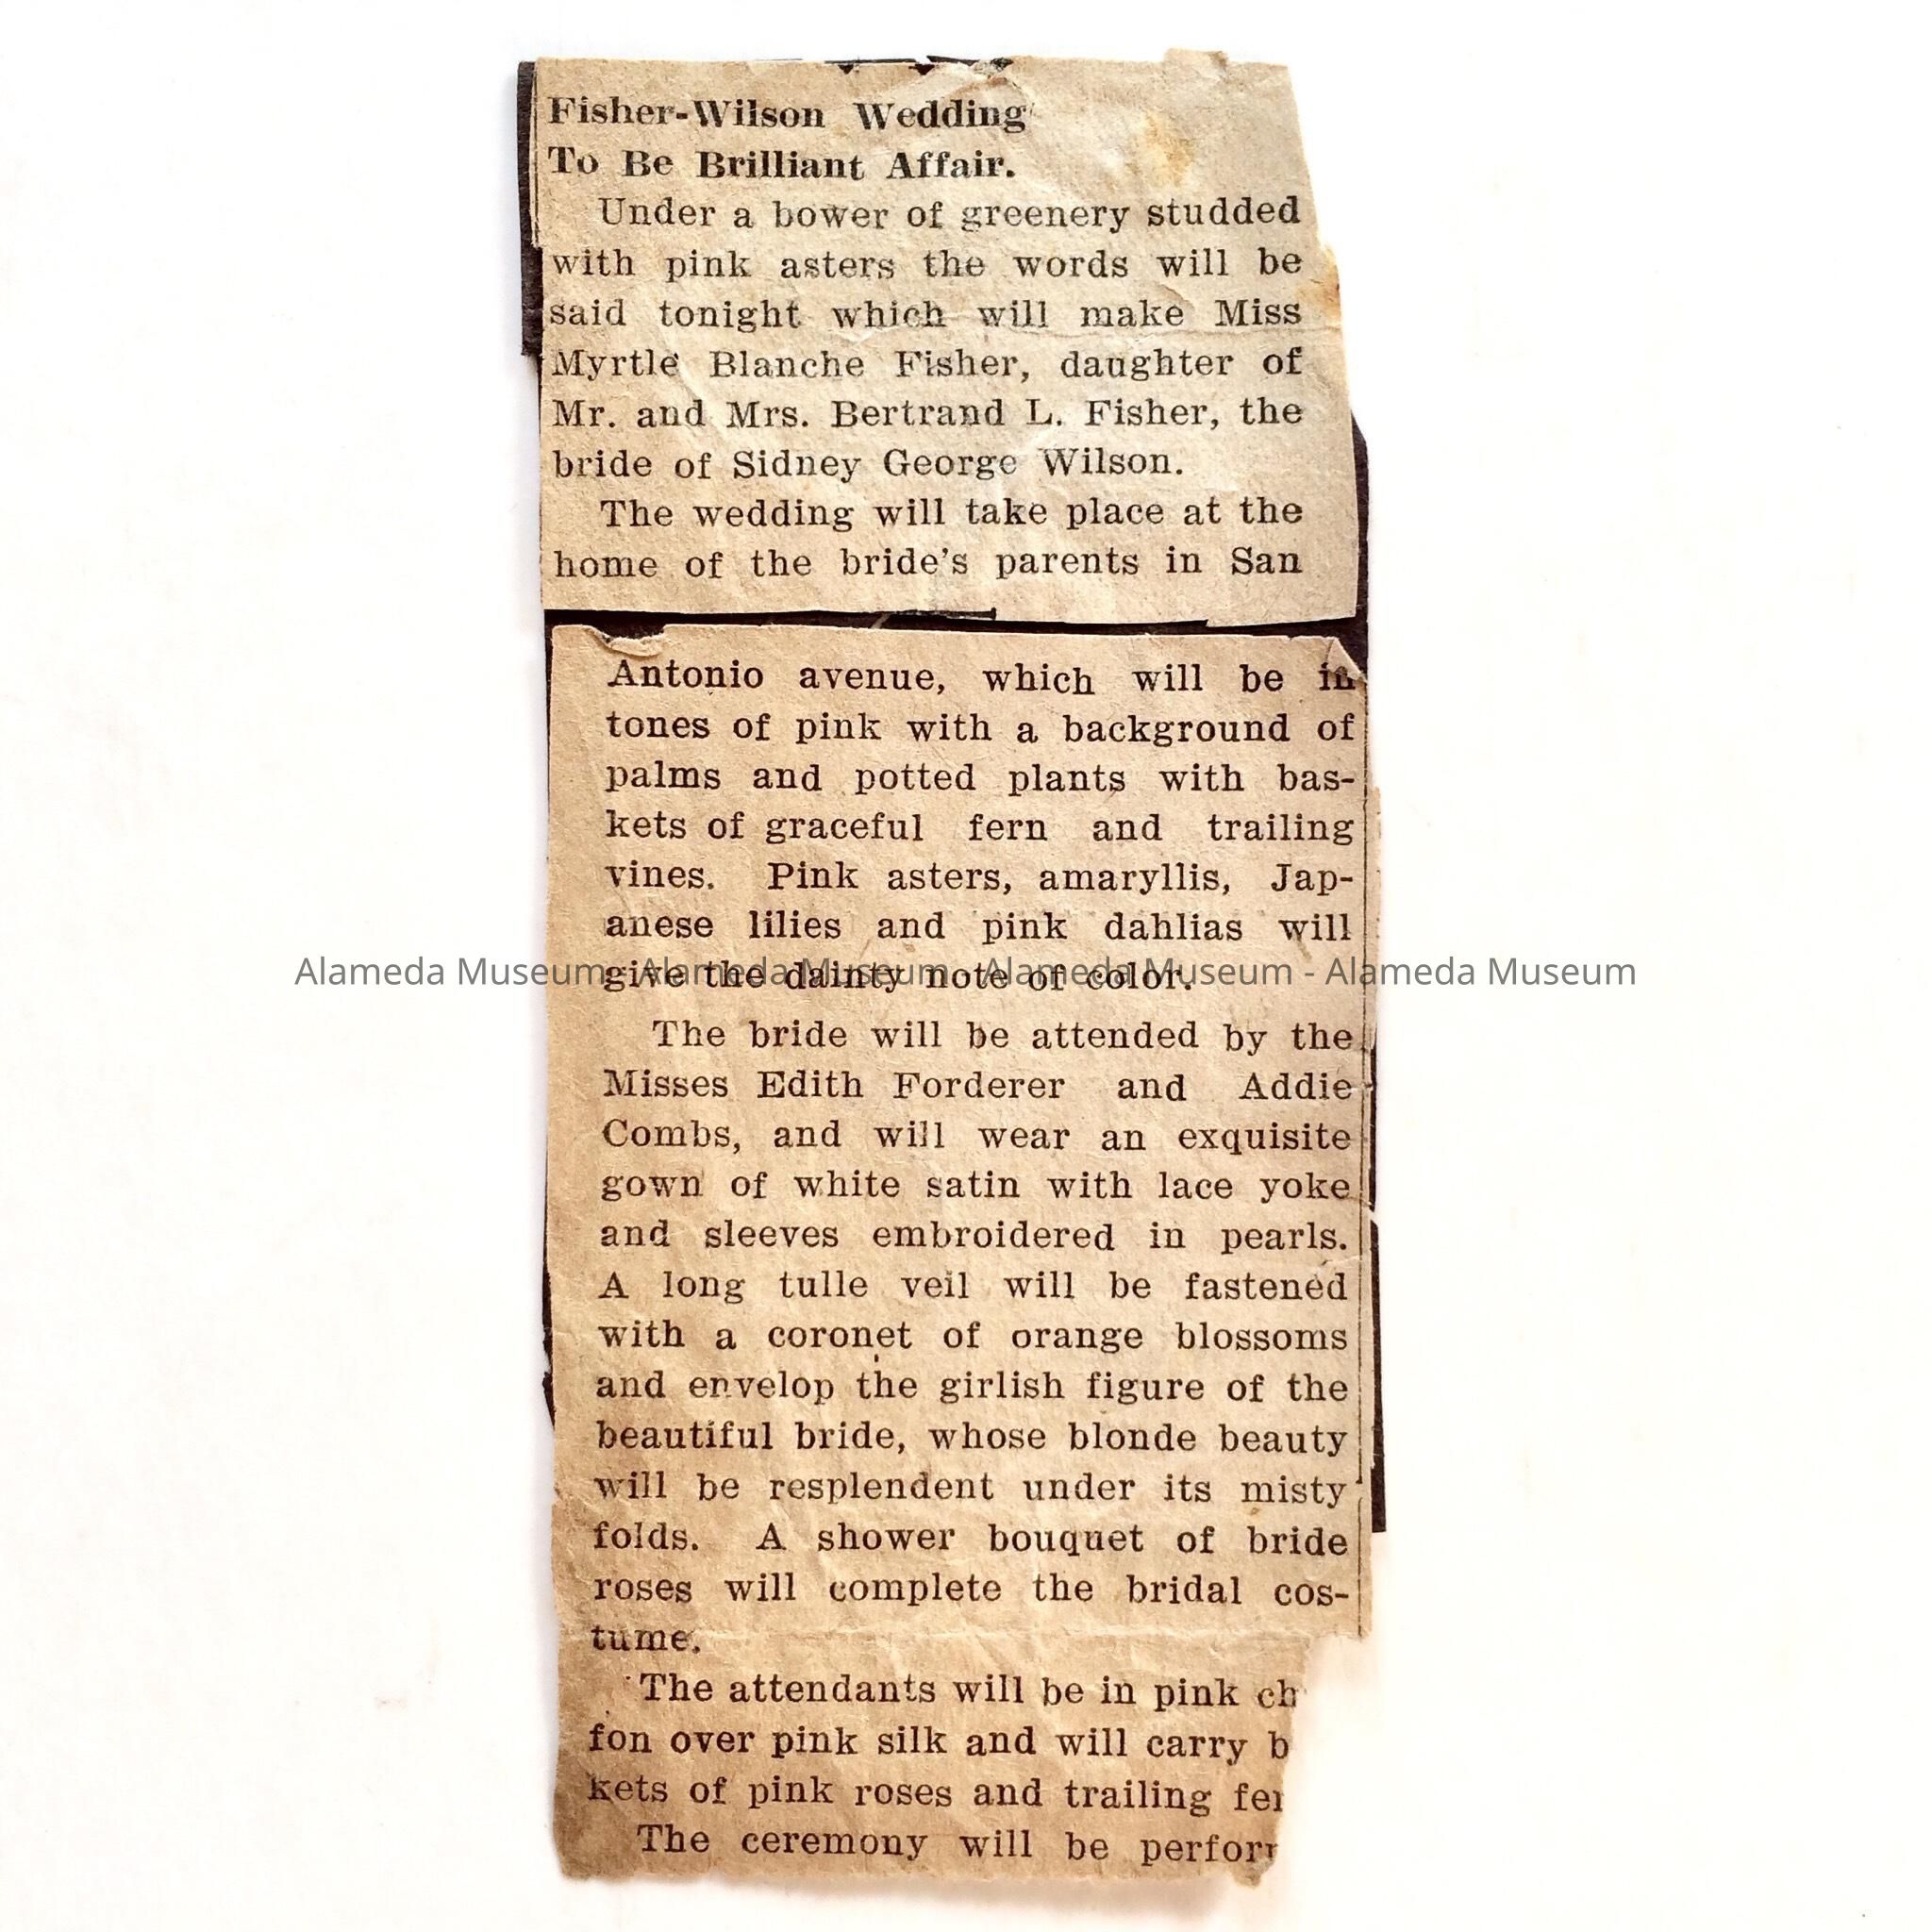 Fisher-Wilson Wedding
To Be Brilliant Affair.
Under a bower of greenery studded
with pink asters the words will be
said tonight which will make Miss
Myrtle Blanche Fisher, daughter of
Mr. and Mrs. Bertrand L. Fisher, the
bride of Sidney George Wilson.
The wedding will take place at the
home of the bride's parents in San
Antonio avenue, which will be in
tones of pink with a background of
palms and potted plants with bas-
kets of graceful fern and trailing
vines. Pink asters, amaryllis, Jap-
anese lilies and pink dahlias will
give the dainty note of color.
Alameda Museum - Alameda Museum - Alameda Museum - Alameda Museum
The bride will be attended by the
Misses Edith Forderer and Addie
Combs, and will wear an exquisite
gown of white satin with lace yoke
and sleeves embroidered in pearls.
A long tulle veil will be fastened
with a coronet of orange blossoms
and envelop the girlish figure of the
beautiful bride, whose blonde beauty
will be resplendent under its misty
folds. A shower bouquet of bride
roses will complete the bridal cos-
tume.
The attendants will be in pink ch
fon over pink silk and will carry b
kets of pink roses and trailing fer
The ceremony will be perfor